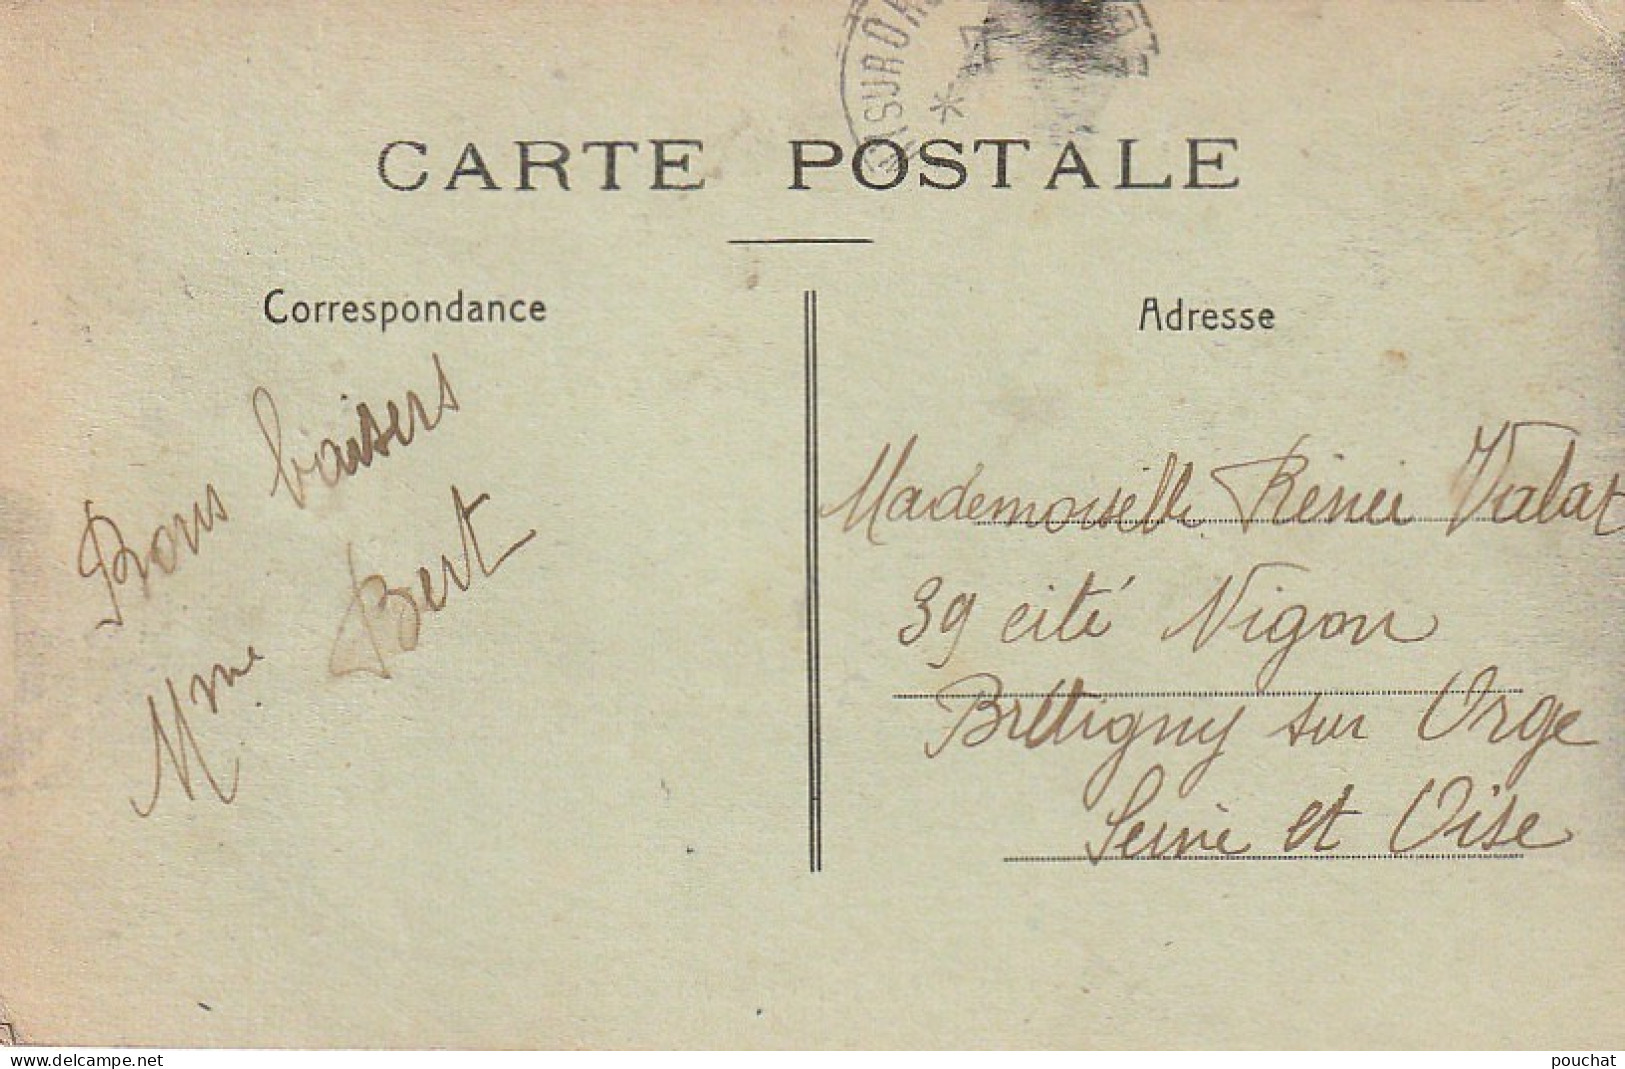 CARTE POSTALE
Correspondance
Adresse
Bons baisers
Mme Bert
Mademoiselle Rénée Valat
39 cité Nigon
Brétigny sur Orge
Seine et Oise
www.delcampe.net
pouchat